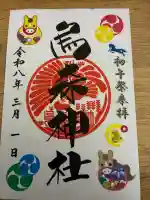 初午祭参拝
烏森神社
令和八年三月一日